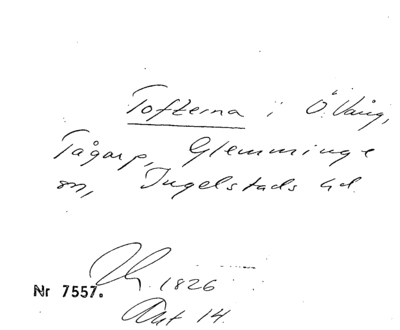 Tofterna i Ö. Vång,
Tågarp, Glemminge
sn, Ingelstads hd.
1826
Nr 7557.
Akt 14.